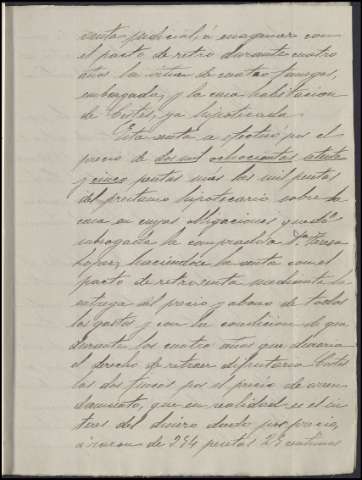 venta judicial, á enagenar con
el pacto de retro durante cuatro
años la viña de cuatro fanegas,
embargada, y la casa habitacion
de Cortés, ya hipotecada.
Esta venta se efectuó por el
precio de dos mil ochocientas setenta
y cinco pesetas mas las mil pesetas
del préstamo hipotecario sobre la
casa en cuyas obligaciones quedó
subrogada la compradora Dª Teresa
haciendose la venta con el
pacto de retroventa mediante la
entrega del precio y abono de todos
los gastos y con la condicion de que
durante los cuatro años que duraria
el derecho de retraer disfrutaria Cortés
las dos fincas por el precio de arren
damiento, que en realidad es el in
teres del dinero dado por precio,
á razon de 254 pesetas 25 centimos